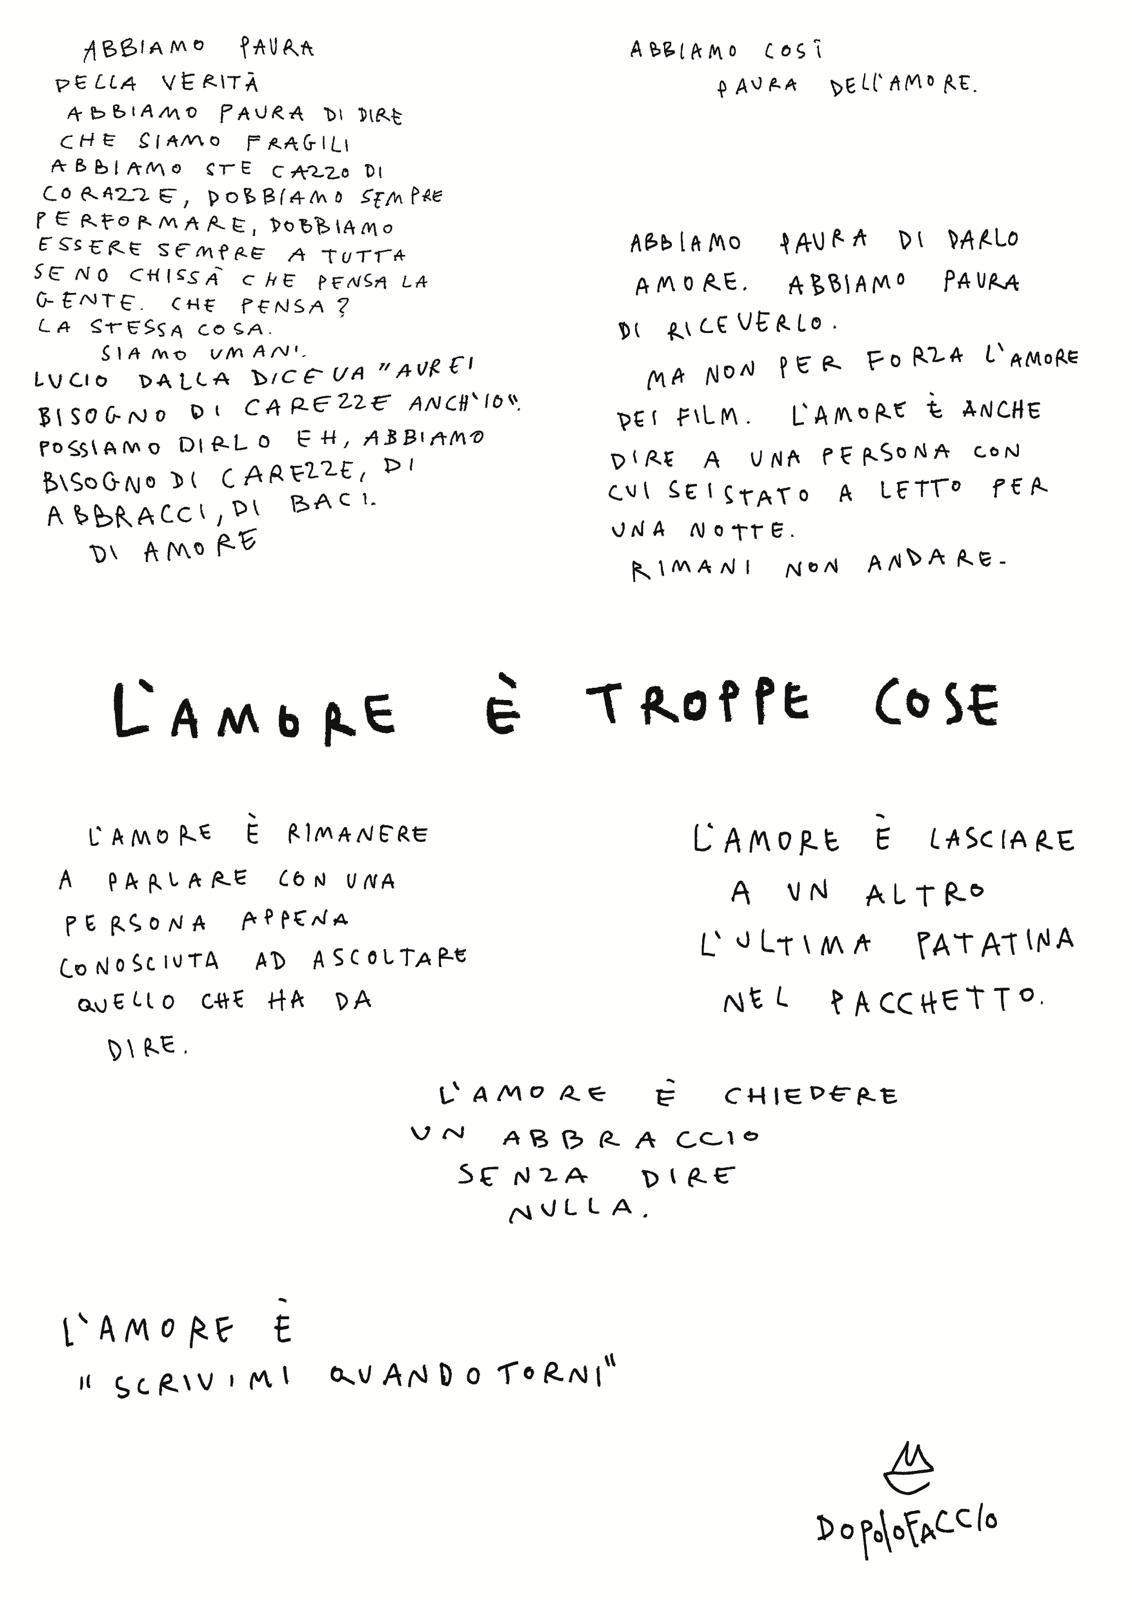 ABBIAMO PAURA
DELLA VERITÀ
ABBIAMO PAURA DI DIRE
CHE SIAMO FRAGILI
ABBIAMO STE CAZZO DI
CORAZZE, DOBBIAMO SEMPRE
PERFORMARE, DOBBIAMO
ESSERE SEMPRE A TUTTA
SE NO CHISSÀ CHE PENSA LA
GENTE. CHE PENSA?
LA STESSA COSA.
SIAMO UMANI.
LUCIO DALLA DICEVA "AVREI
BISOGNO DI CAREZZE ANCH'IO".
POSSIAMO DIRLO EH, ABBIAMO
BISOGNO DI CAREZZE, DI
ABBRACCI, DI BACI.
DI AMORE
ABBIAMO COSÌ
PAURA DELL'AMORE.
ABBIAMO PAURA DI DARLO
AMORE. ABBIAMO PAURA
DI RICEVERLO.
MA NON PER FORZA L'AMORE
DEI FILM. L'AMORE È ANCHE
DIRE A UNA PERSONA CON
CUI SEI STATO A LETTO PER
UNA NOTTE.
RIMANI NON ANDARE.
L'AMORE È TROPPE COSE
L'AMORE È RIMANERE
A PARLARE CON UNA
PERSONA APPENA
CONOSCIUTA AD ASCOLTARE
QUELLO CHE HA DA
DIRE.
L'AMORE È LASCIARE
A UN ALTRO
L'ULTIMA PATATINA
NEL PACCHETTO.
L'AMORE È CHIEDERE
UN ABBRACCIO
SENZA DIRE
NULLA.
L'AMORE È
"SCRIVIMI QUANDO TORNI"
DOPOLOFACCIO